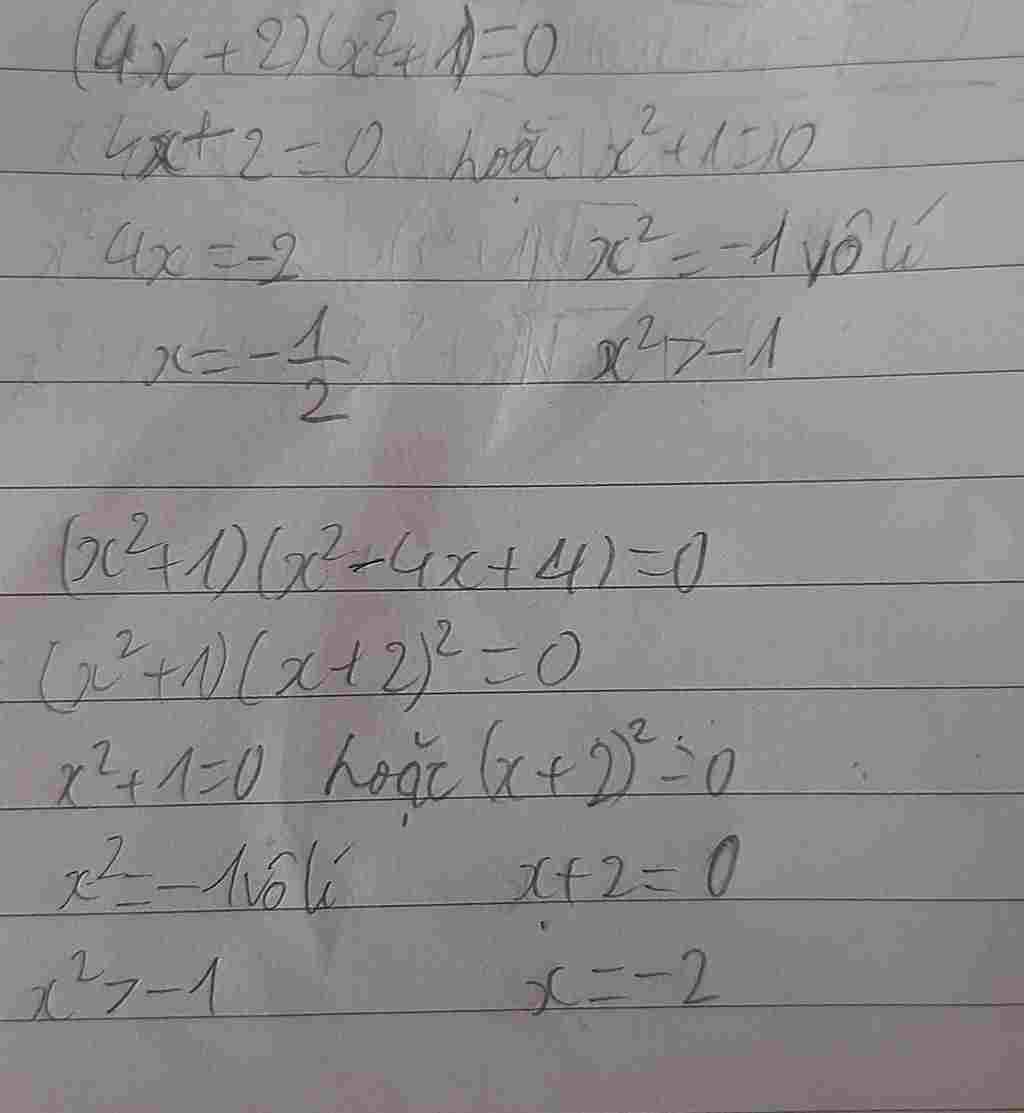 (4x+2)(x²+1)=0
4x+2=0 hoặc x²+1=0
4x=-2 x²=-1 vô lí
x=-1/2 x²>-1
(x²+1)(x²-4x+4)=0
(x²+1)(x+2)²=0
x²+1=0 hoặc (x+2)²=0
x²=-1 vô lí x+2=0
x²>-1 x=-2